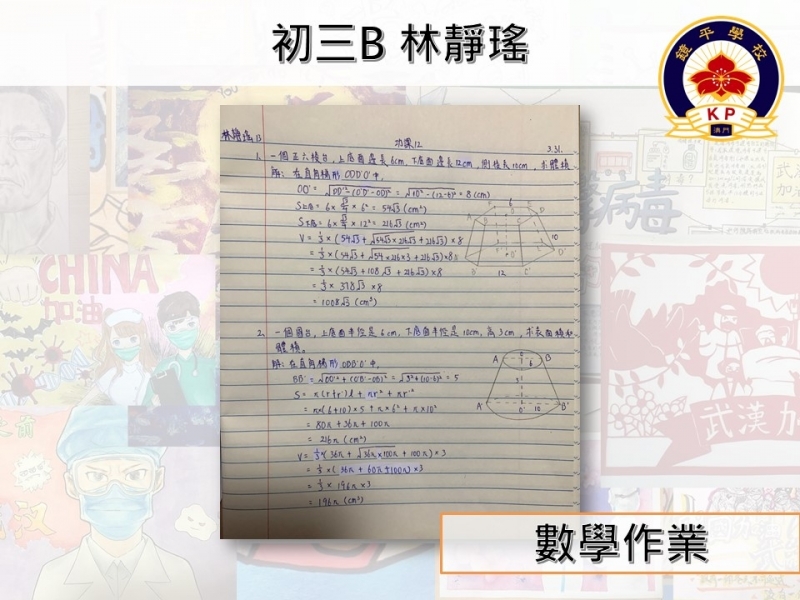 初三B 林靜瑤
鏡平學校
KP
澳門
林靜瑤 13
功課12
3.31.
1. 一個正六棱台，上底面邊長6cm，下底面邊長12cm，側棱長10cm，求體積
解：在直角梯形ODD'O'中，
OO' = √(DD'²-(O'D'-OD)²) = √(10²-(12-6)²) = 8 (cm)
S上底 = 6×√3/4×6² = 54√3 (cm²)
S下底 = 6×√3/4×12² = 216√3 (cm²)
V = 1/3×(54√3+√(54√3×216√3)+216√3)×8
= 1/3×(54√3+√(54×216×3)+216√3)×8
= 1/3×(54√3+108√3+216√3)×8
= 1/3×378√3×8
= 1008√3 (cm³)
6
10
12
2. 一個圓台，上底面半徑是6cm，下底面半徑是10cm，高3cm，求表面積和
體積。
解：在直角梯形OBB'O'中，
BB' = √(OO'²+(O'B'-OB)²) = √(3²+(10-6)²) = 5
S = π(r+r')l+πr²+πr'²
= π×(6+10)×5+π×6²+π×10²
= 80π+36π+100π
= 216π (cm²)
V = 1/3×(36π+√(36π×100π)+100π)×3
= 1/3×(36π+60π+100π)×3
= 1/3×196π×3
= 196π (cm³)
A O B
6
A' O' 10 B'
CHINA
加油
病毒
武漢加
數學作業